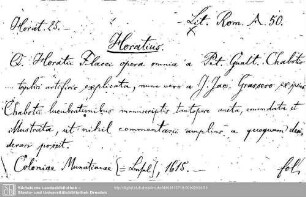 Horat. 25. — Lit. Rom. A. 50.
Horatius.
Q. Horatii Flacci opera omnia a Pet. Gualt. Chaboto
toplici artificio explicata, nunc vero a J. Jac. Grassero ex ipsius
Chabotii lucubrationibus manuscriptis tantopere aucta, emendata et
illustrata, ut nihil commentarii amplius a quoquam desi-
derari possit.
Coloniae Munatianae 1615. — fol.
Sächsische Landesbibliothek -
Staats- und Universitätsbibliothek Dresden